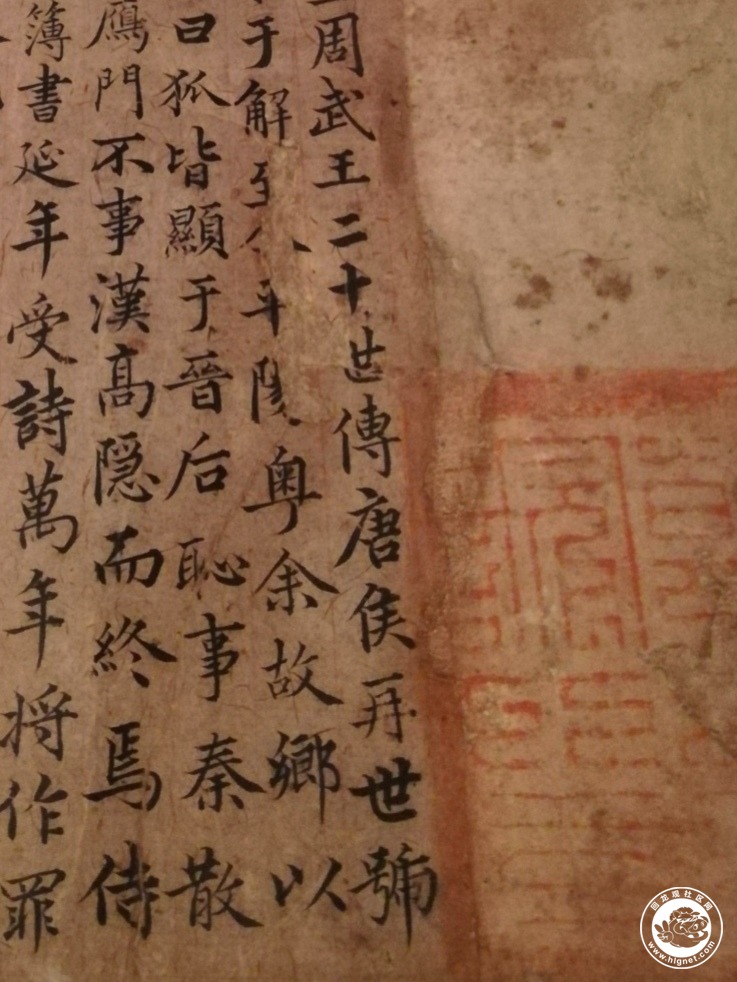 周武王二十世傳唐侯再世號
于解至今平陵粵余故鄉以
曰狐皆顯于晉后恥事秦散
鴈門不事漢高隱而終焉侍
簿書延年受詩萬年將作罪
回龙观社区网
www.hlgnet.com